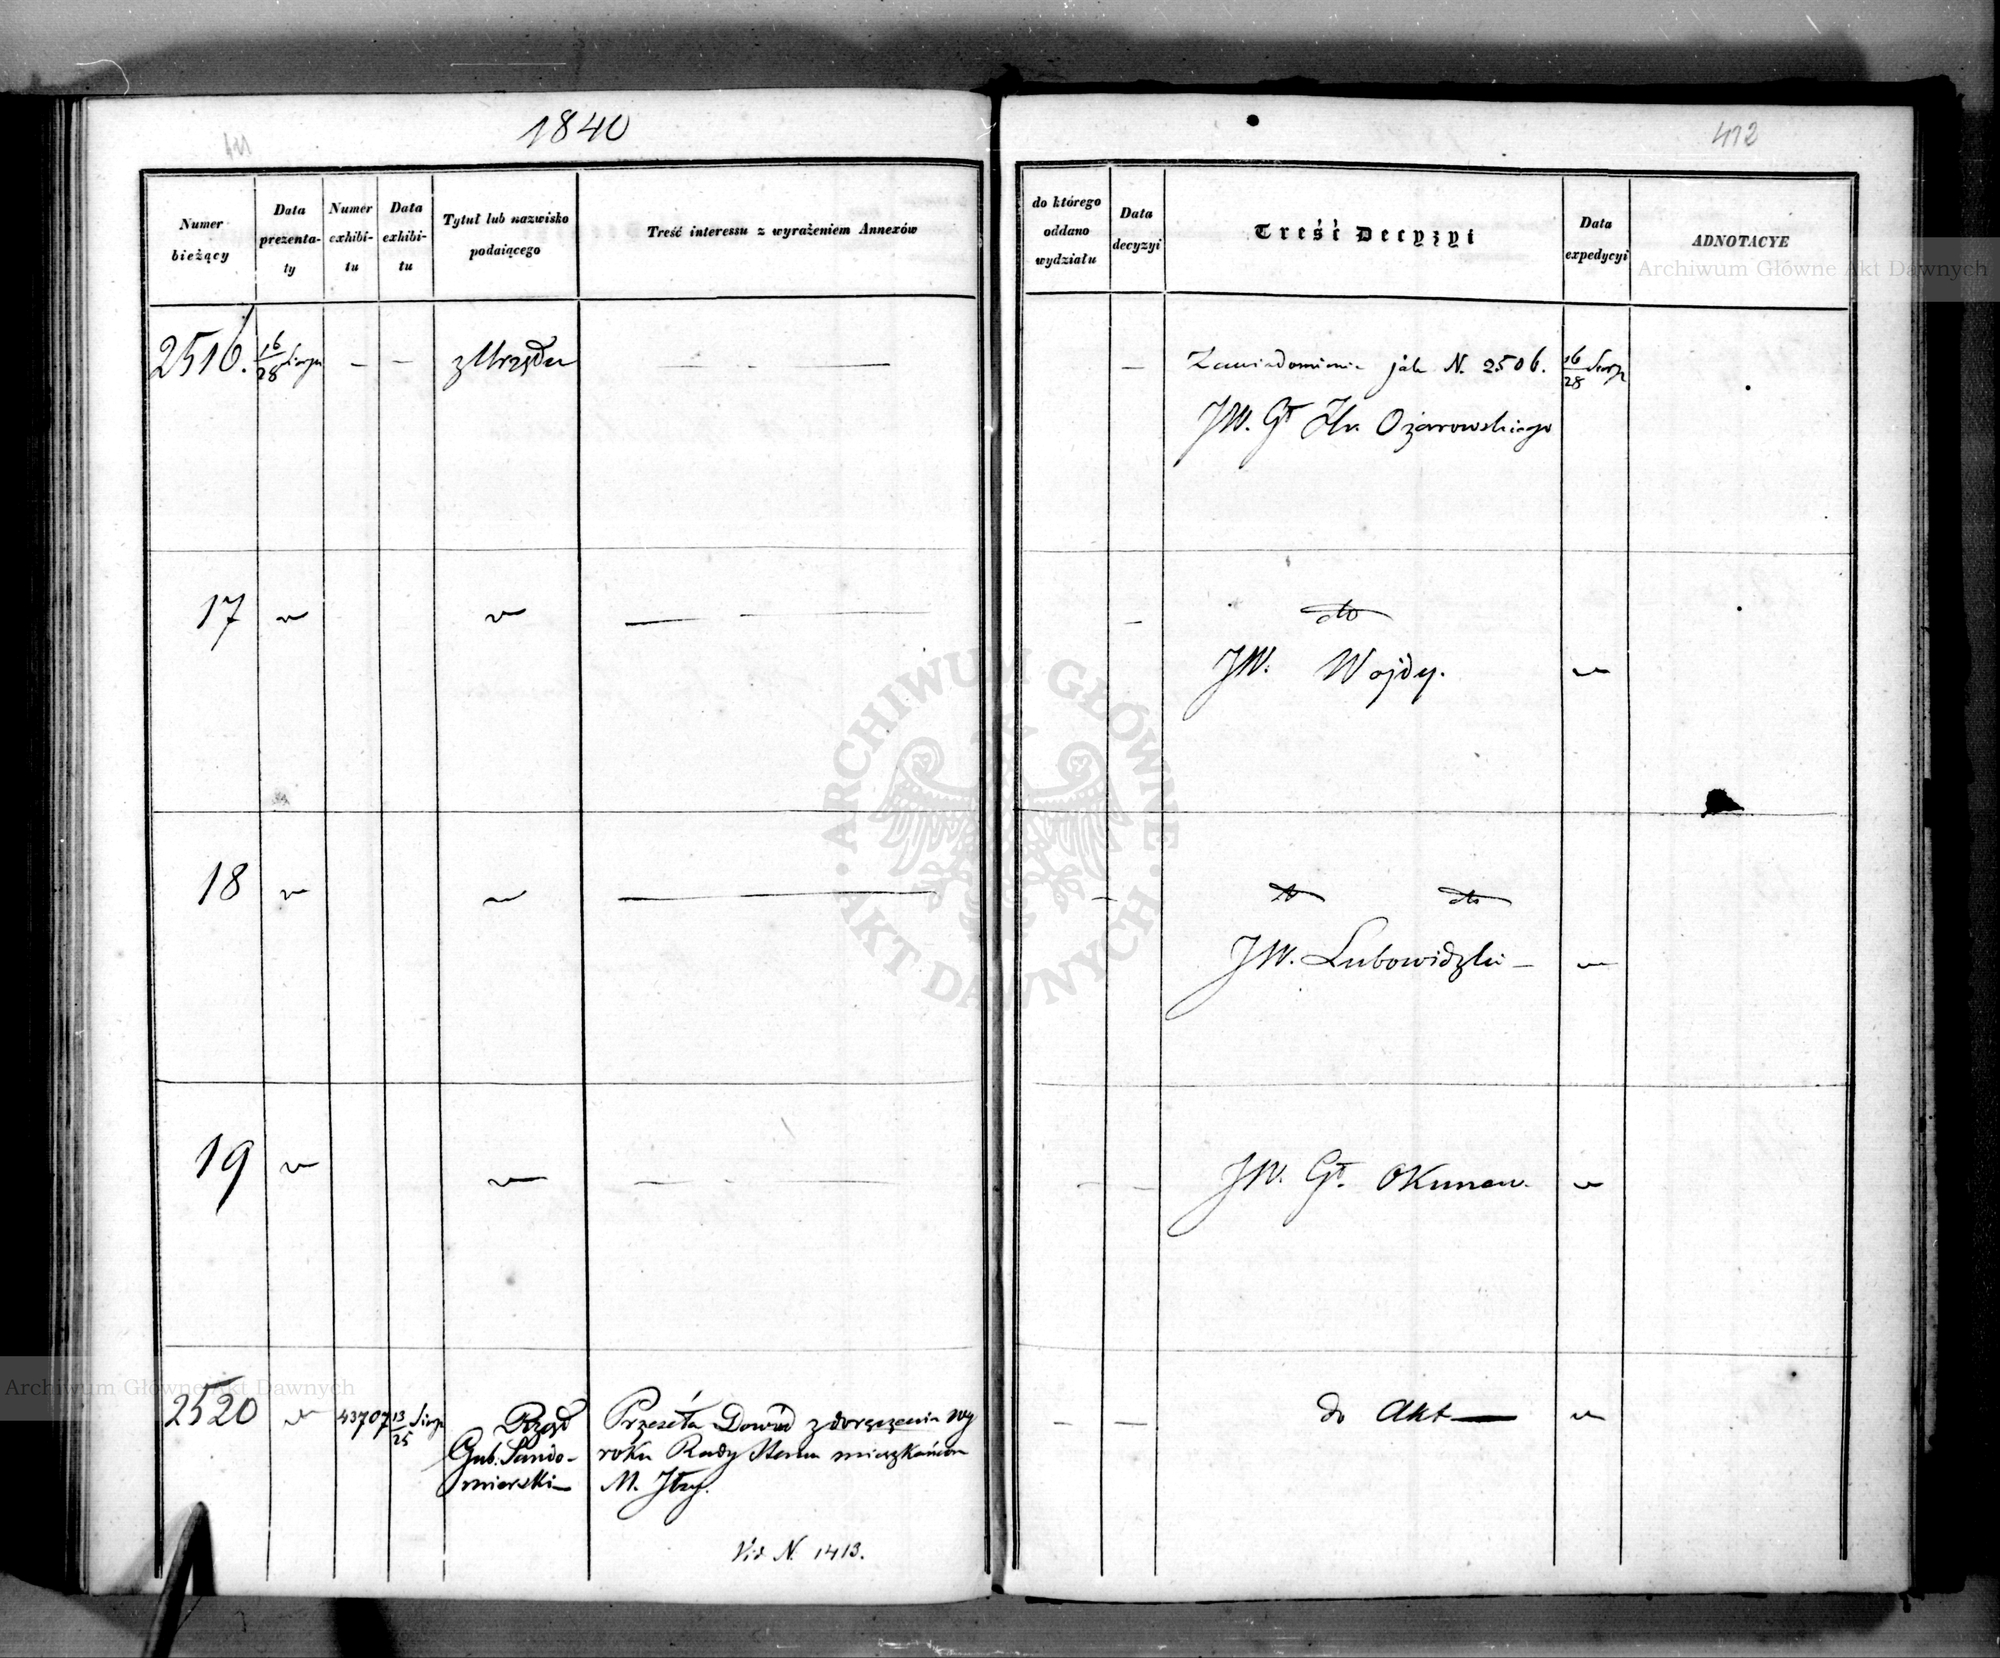 1840
411
412
Numer bieżący
Data prezentaty
Numer exhibitu
Data exhibitu
Tytuł lub nazwisko podaiącego
Treść interessu z wyrażeniem Annexów
do którego oddano wydziału
Data decyzyi
Treść Decyzyi
Data expedycyi
ADNOTACYE
2516. 16/28 Sierp — — z Urzędu — - — — Zawiadomienie jak N. 2506. 16/28 Sierp
JW. Gł Hr. Ożarowskiego
17 — dto
JW. Wojdy.
18 — dto dto
JW. Lubowidzki —
19 — - — - — JW. Gł. Okunew.
2520 43707 13/25 Sierp Rząd Gub. Sando-mierski — — — do Akt —
Przeseła Dowód z doręczenia wy
roku Rady Stanu mieszkańcom
M. Iłży.
Vid N. 1413.
ARCHIWUM GŁÓWNE AKT DAWNYCH
Archiwum Główne Akt Dawnych
Archiwum Główne Akt Dawnych